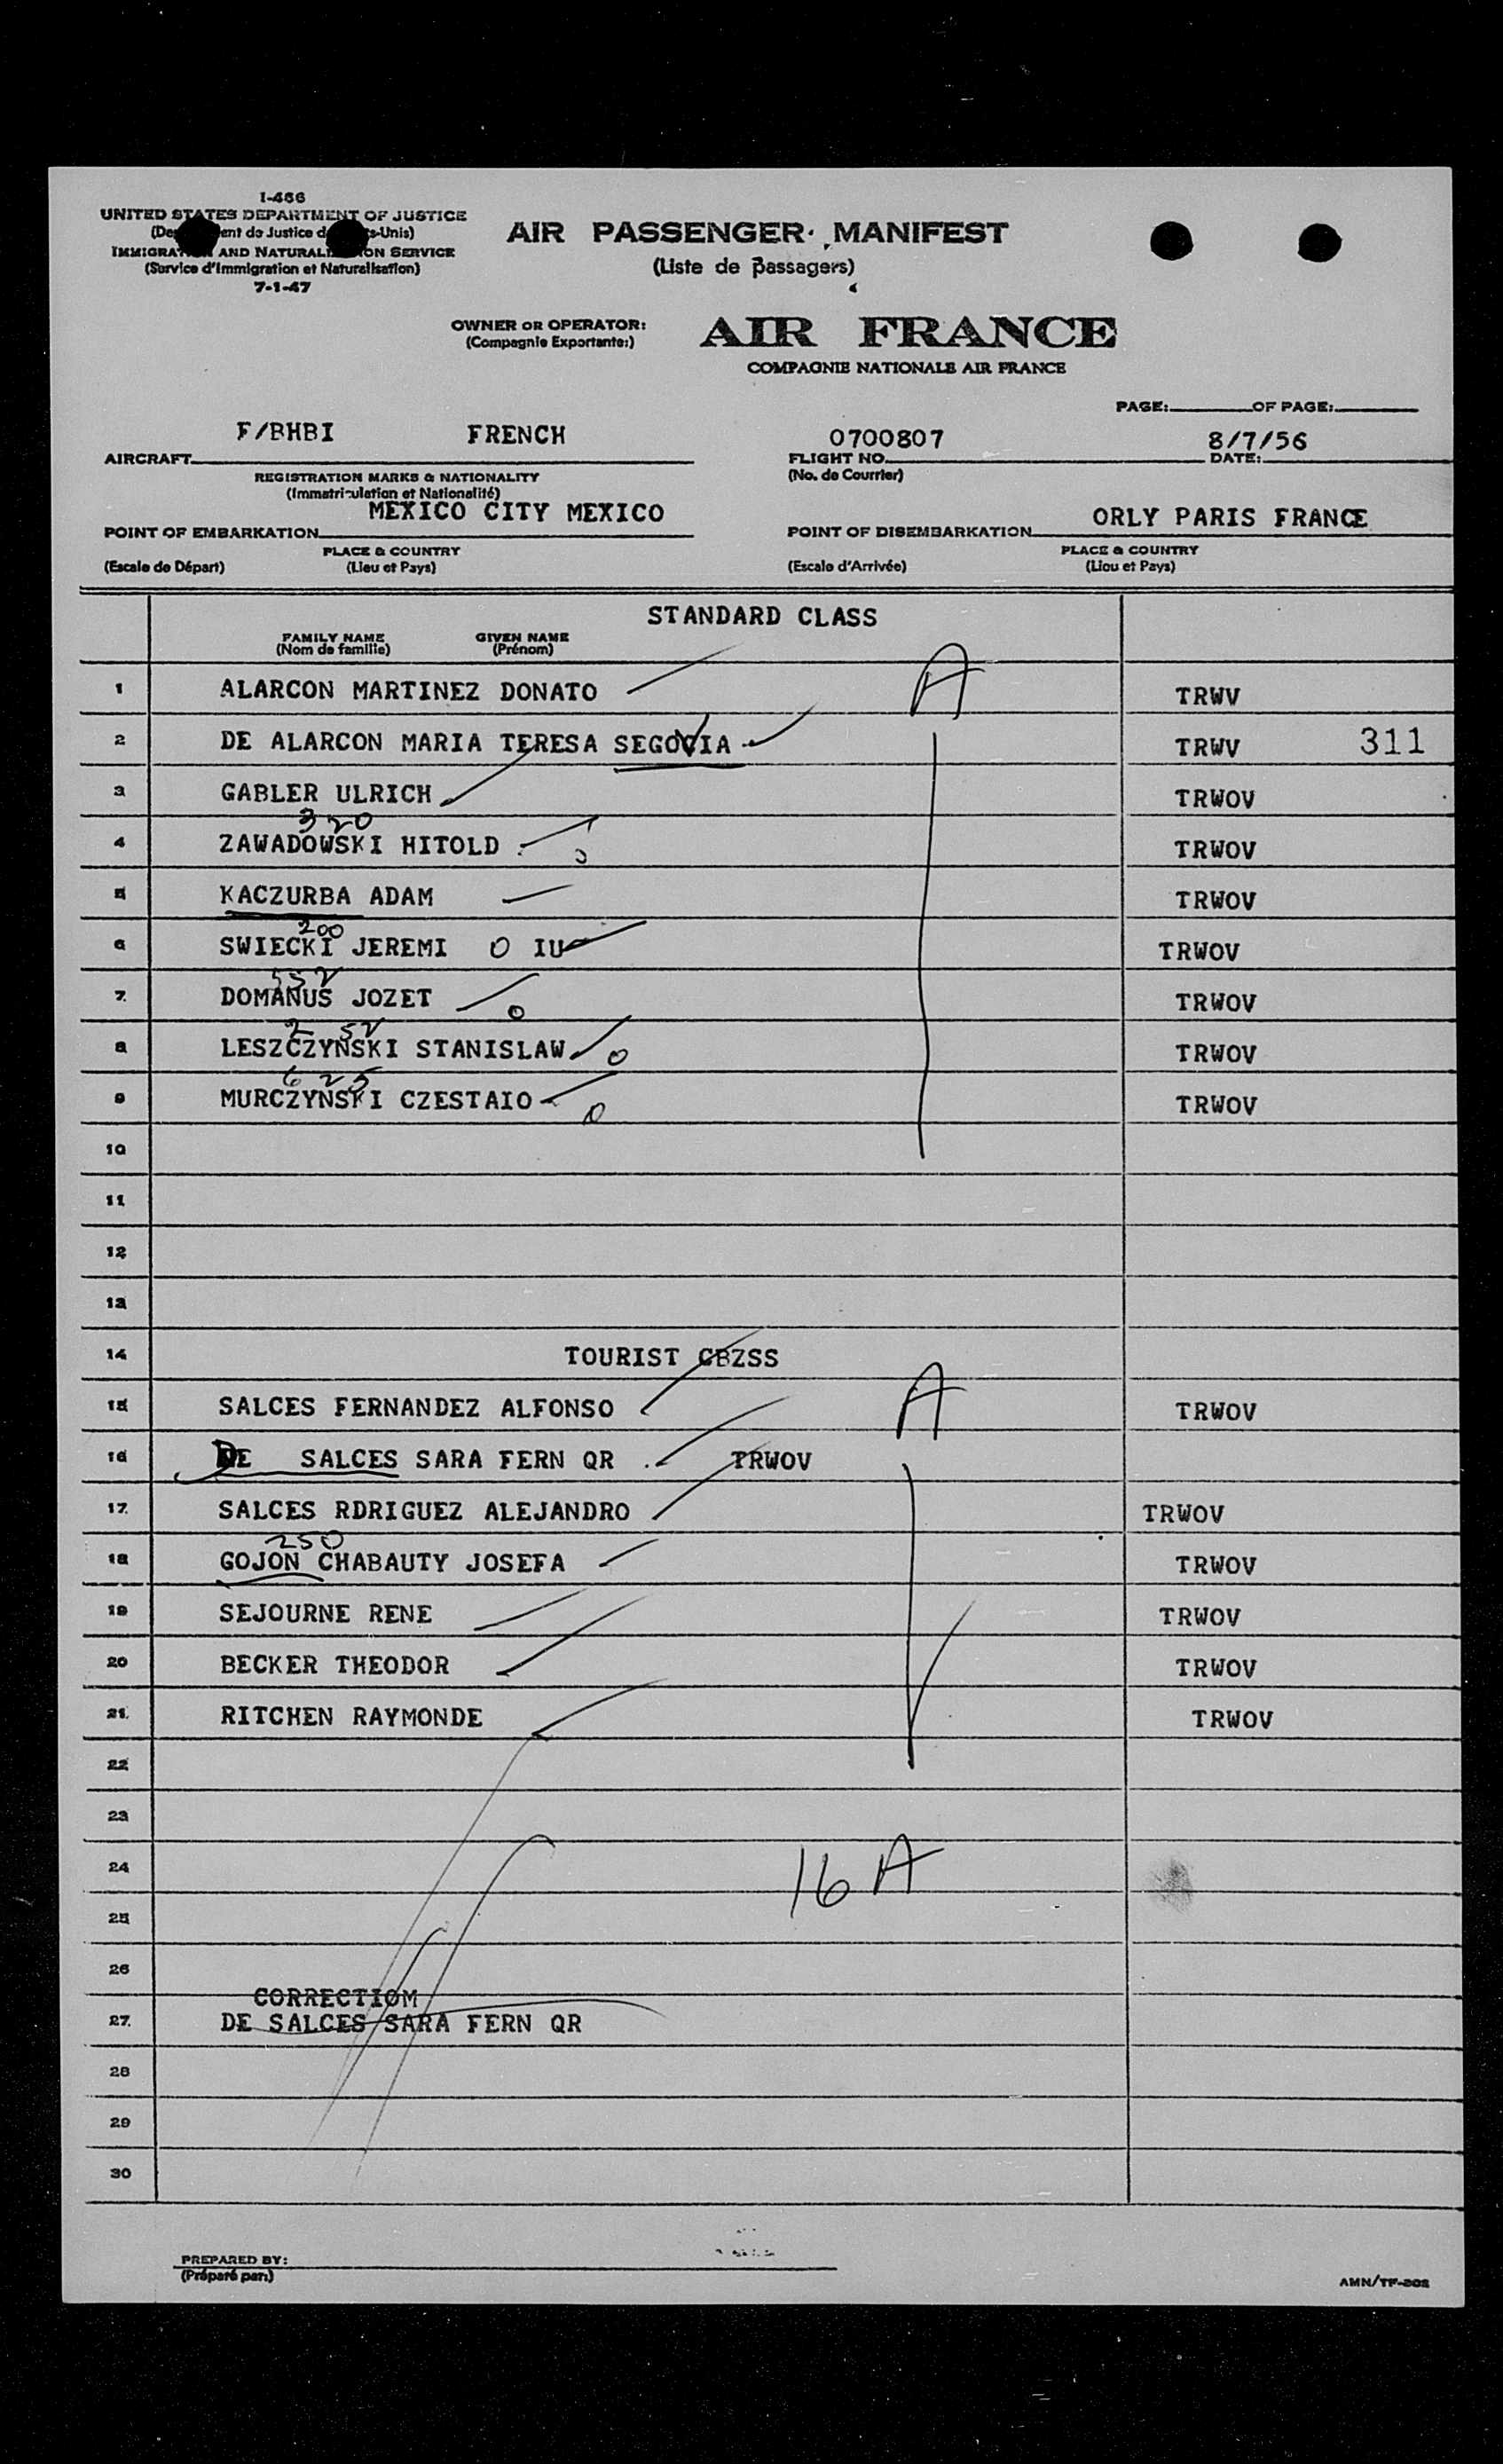 I-466
UNITED STATES DEPARTMENT OF JUSTICE
ent de Justice s-Unis)
IMMIGRA AND NATURALI ON SERVICE
(Service d'Immigration et Naturalisation)
7-1-47
AIR PASSENGER MANIFEST
(Liste de passagers)
OWNER OR OPERATOR:
(Compagnie Exportante:)
AIR FRANCE
COMPAGNIE NATIONALE AIR FRANCE
PAGE: OF PAGE:
F/BHBI FRENCH 0700807 8/7/56
AIRCRAFT FLIGHT NO. DATE:
REGISTRATION MARKS & NATIONALITY (No. de Courrier)
(Immatriculation et Nationalité)
MEXICO CITY MEXICO ORLY PARIS FRANCE
POINT OF EMBARKATION POINT OF DISEMBARKATION
PLACE & COUNTRY PLACE & COUNTRY
(Escale de Départ) (Lieu et Pays) (Escale d'Arrivée) (Lieu et Pays)
STANDARD CLASS
FAMILY NAME GIVEN NAME
(Nom de famille) (Prénom)
1 ALARCON MARTINEZ DONATO A TRWV
2 DE ALARCON MARIA TERESA SEGOVIA TRWV 311
3 GABLER ULRICH TRWOV
320
4 ZAWADOWSKI HITOLD TRWOV
5 KACZURBA ADAM TRWOV
200
6 SWIECKI JEREMI O IU TRWOV
552
7 DOMANUS JOZET O TRWOV
2 52
8 LESZCZYNSKI STANISLAW O TRWOV
6 25
9 MURCZYNSKI CZESTAIO O TRWOV
10
11
12
13
14 TOURIST CBZSS
15 SALCES FERNANDEZ ALFONSO A TRWOV
16 DE SALCES SARA FERN QR TRWOV
17 SALCES RDRIGUEZ ALEJANDRO TRWOV
250
18 GOJON CHABAUTY JOSEFA TRWOV
19 SEJOURNE RENE TRWOV
20 BECKER THEODOR TRWOV
21 RITCHEN RAYMONDE TRWOV
22
23
24 16 A
25
26
CORRECTIOM
27 DE SALCES SARA FERN QR
28
29
30
PREPARED BY:
(Préparé par:)
AMN/TF-202